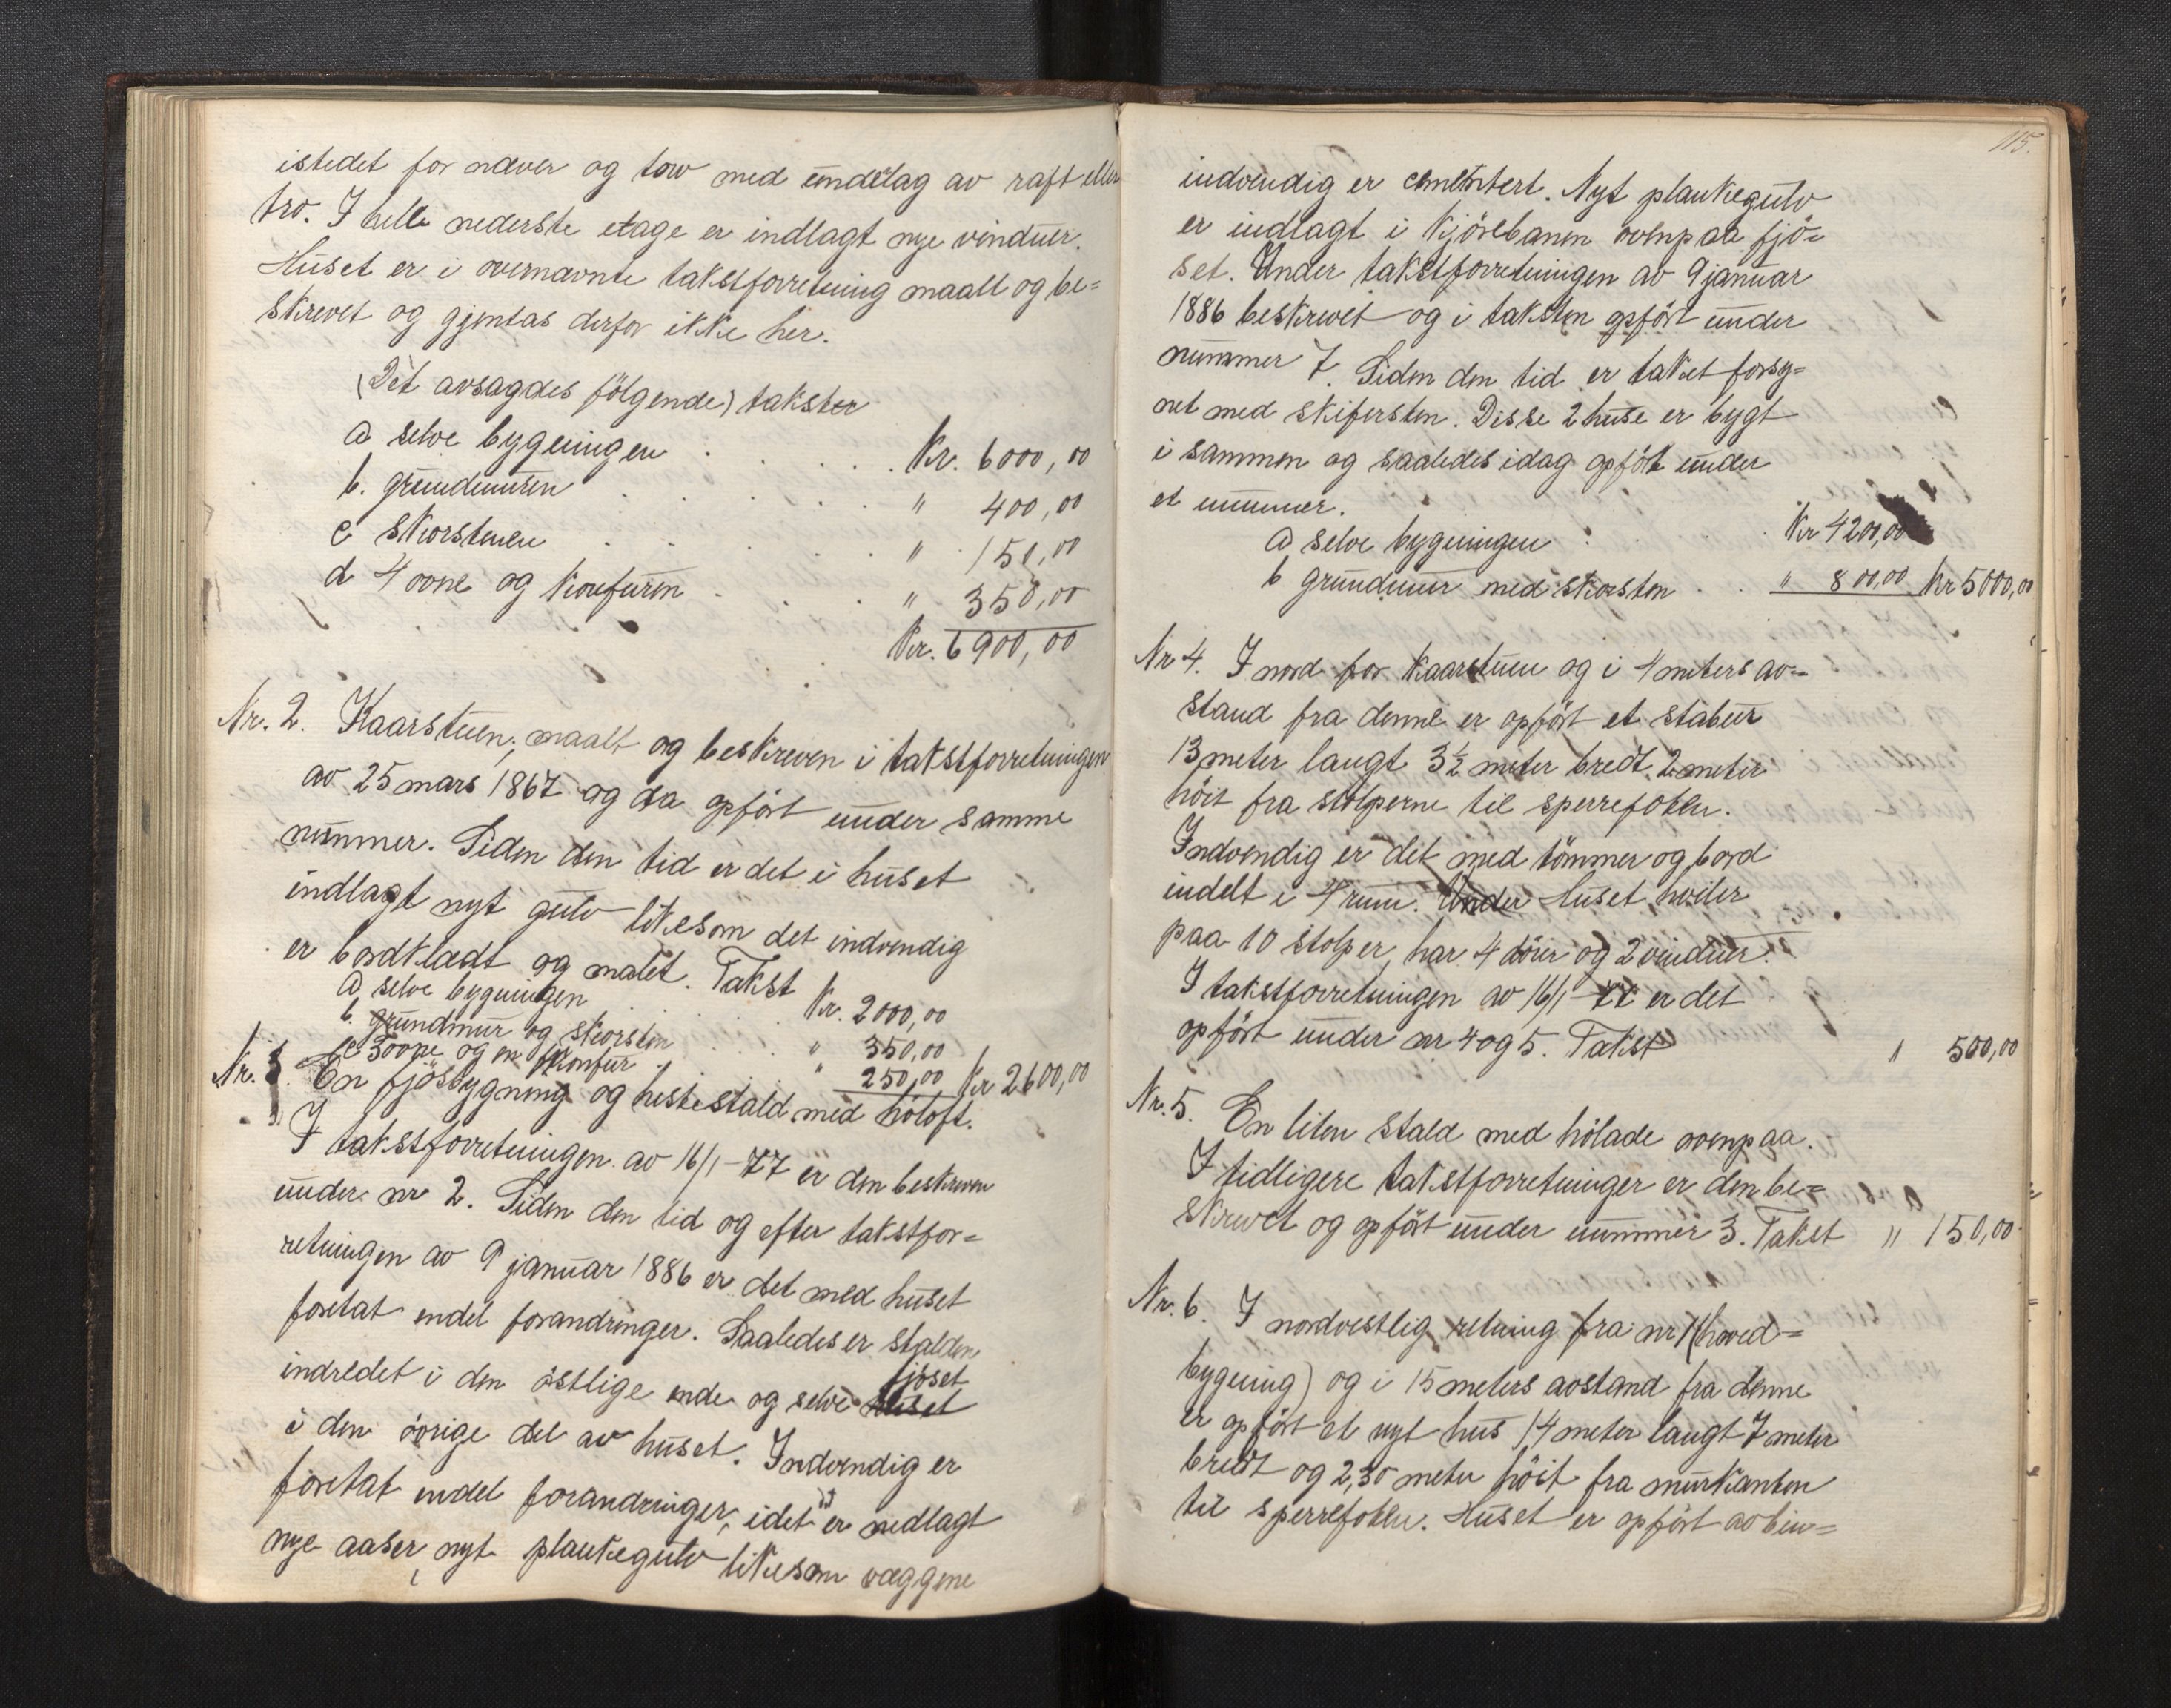 istedet for næver og tow med underlag av raft eller
tro. I hele nederste etage er indlagt nye vinduer.
Huset er i overnævnte takstforretning maalt og be=
skrevet og gjentas derfor ikke her.
(Det avsagdes følgende) takster
a selve bygningen . . . . . Kr. 6000,00
b. grundmuren . . . . " 400,00
c skorstenen . . . . . " 150,00
d 4 ovne og komfuren . . . " 350,00
Kr. 6900,00
Nr. 2. Kaarstuen, maalt og beskreven i takstforretningen
av 25 mars 1867 og da opført under samme
nummer. Siden den tid er det i huset
indlagt nyt gulv likesom det indvendig
er bordklædt og malet. Takst
a selve bygningen . . . Kr. 2000,00
b. grundmur og skorsten . . . " 350,00
c 3 ovne og en komfur . . . " 250,00 Kr 2600,00
Nr. 3. En fjøsbygning og hestestald med høloft.
I takstforretningen av 16/1-77 er den beskreven
under nr 2. Siden den tid og efter takstfor=
retningen av 9 januar 1886 er det med huset
foretat endel forandringer. Saaledes er stalden
indredet i den østlige ende og selve huset fjøset
i den øvrige del av huset. Indvendig er
foretat endel forandringer, idet er nedlagt
nye aaser, nyt plankegulv likesom væggene
115.
indvendig er cementert. Nyt plankegulv
er indlagt i kjørebanen ovenpaa fjø=
set. Under takstforretningen av 9 januar
1886 beskrevet og i taksten opført under
nummer 7. Siden den tid er taket forsy=
net med skifersten. Disse 2 huse er bygt
i sammen og saaledes idag opført under
et nummer.
a selve bygningen . . Kr 4200,00
b grundmur med skorsten . . " 800,00 Kr 5000,00
Nr 4. I nord for kaarstuen og i 4 meters av=
stand fra denne er opført et stabur
13 meter langt 3½ meter bredt 2 meter
høit fra stolperne til sperrefoten.
Indvendig er det med tømmer og bord
indelt i 4 rum. Under Huset hviler
paa 10 stolper, har 4 dører og 2 vinduer.
I takstforretningen av 16/1-77 er det
opført under nr 4 og 5. Takst " 500,00
Nr. 5. En liten stald med hølade ovenpaa.
I tidligere takstforretninger er den be=
skrevet og opført under nummer 3. Takst " 150,00
Nr. 6. I nordvestlig retning fra nr 1 (hoved=
bygning) og i 15 meters avstand fra denne
er opført et nyt hus 14 meter langt 7 meter
bredt og 2,30 meter høit fra murkanten
til sperrefoten. Huset er opført av bin=